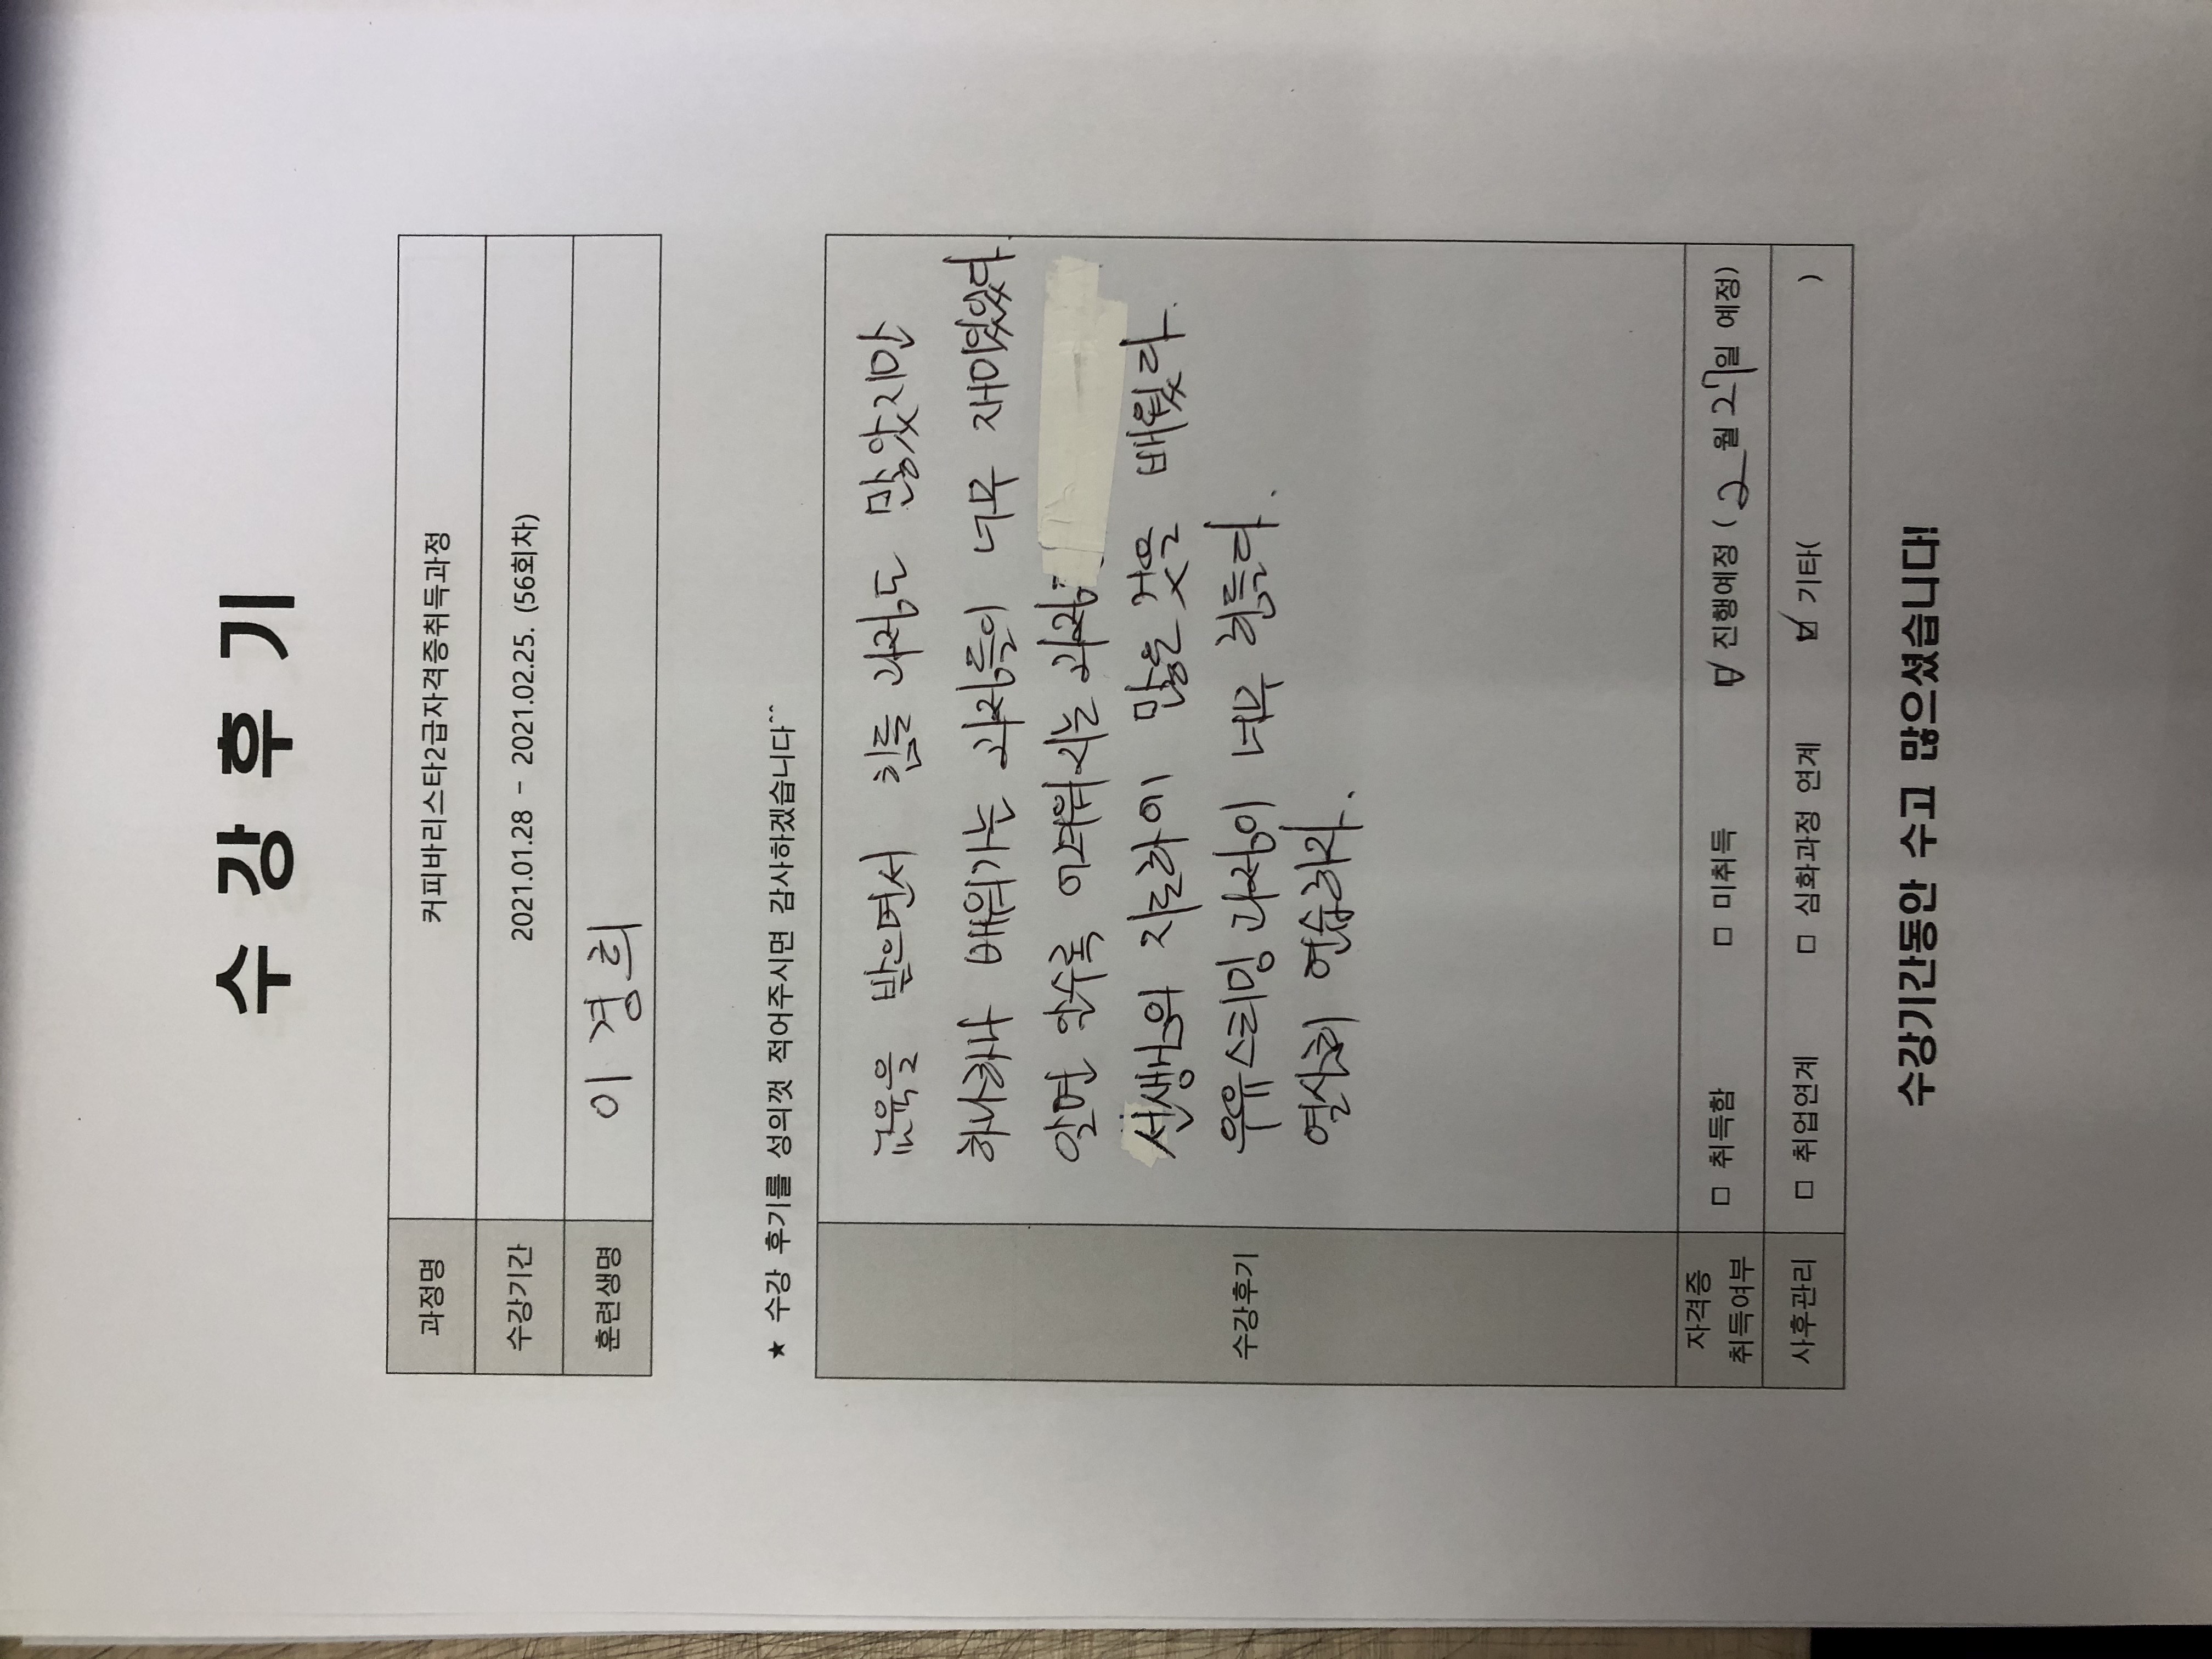 수 강 후 기
과정명 커피바리스타2급자격증취득과정
수강기간 2021.01.28 - 2021.02.25. (56회차)
훈련생명 이경희
★ 수강 후기를 성의껏 적어주시면 감사하겠습니다^^
수강후기
교육을 받으면서 힘든 과정도 많았지만
하나하나 배워가는 과정들이 너무 재미있었다.
알면 알수록 어려워지는 과정
선생님의 지도하에 많을 것을 배웠다.
우유스티밍 과정이 너무 힘들다.
열심히 연습하자.
자격증
취득여부 □ 취득함 □ 미취득 ☑ 진행예정 ( 2월 27일 예정)
사후관리 □ 취업연계 □ 심화과정 연계 ☑ 기타( )
수강기간동안 수고 많으셨습니다!